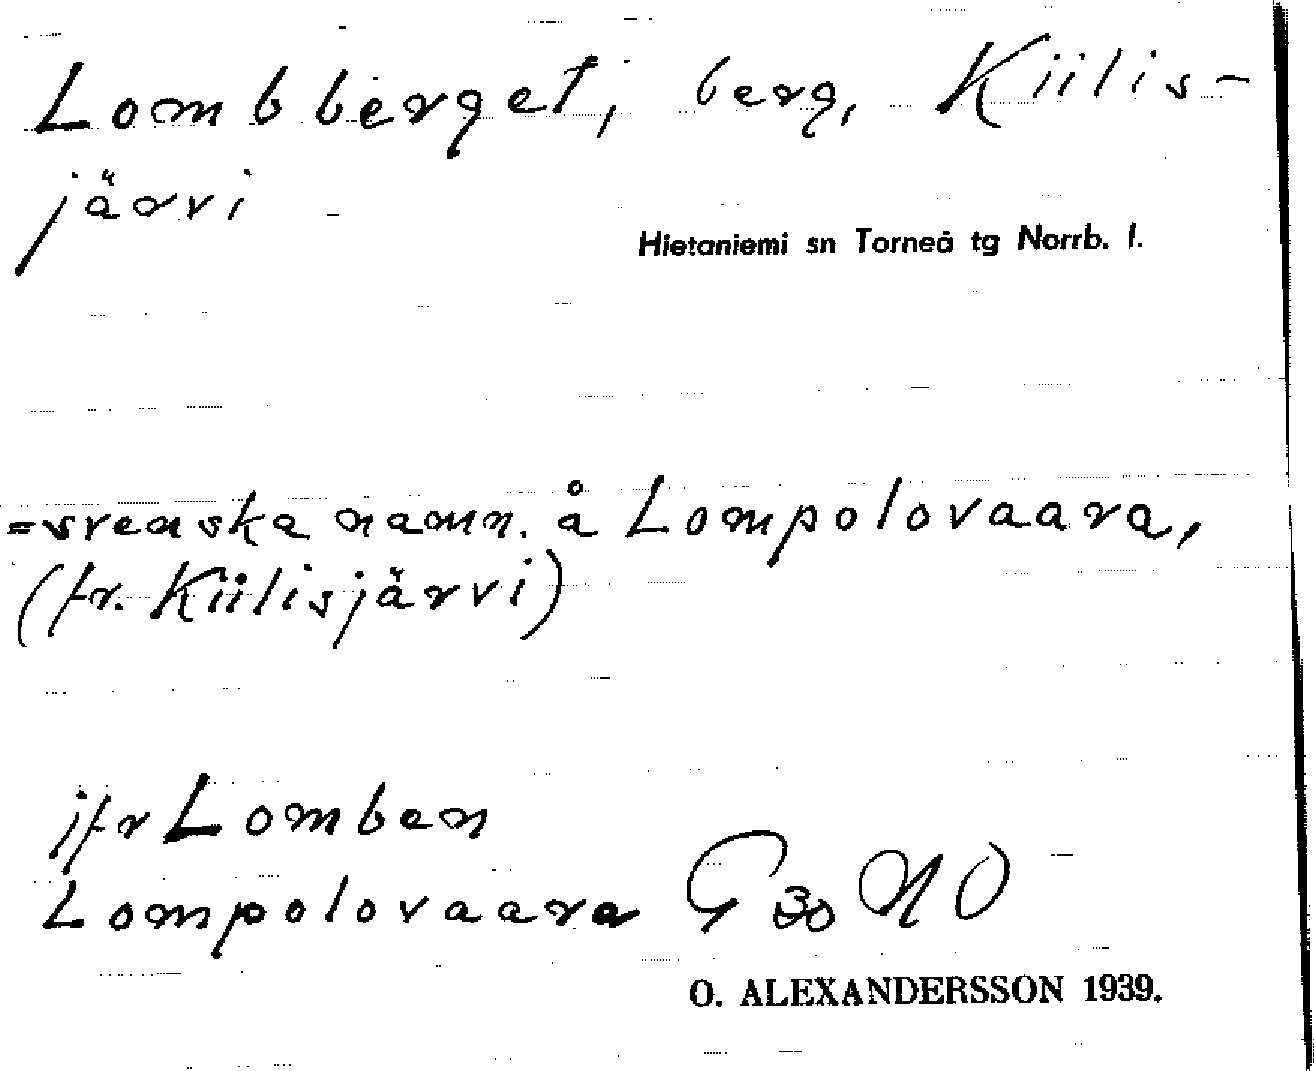 Lombberget, berg, Kiilis-
järvi
Hietaniemi sn Torneå tg Norrb. l.
=svenska namn. å Lompolovaara,
(fr. Kiilisjärvi)
jfr Lomben
Lompolovaara G 30 NO
O. ALEXANDERSSON 1939.